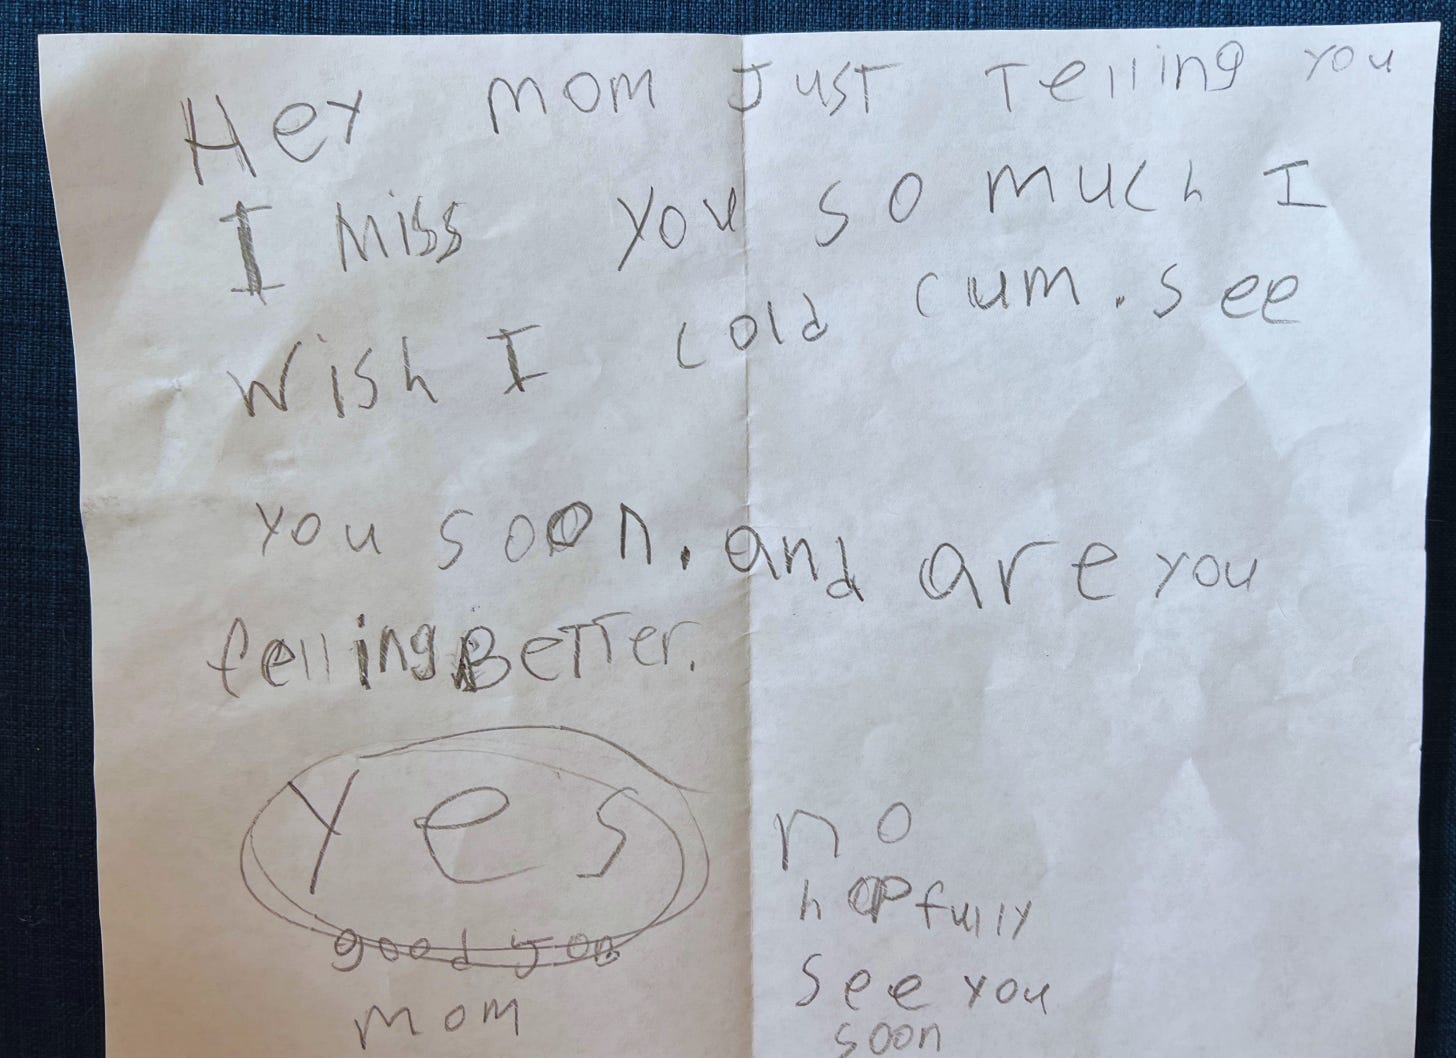 Hey mom Just Telling you
I miss you so much I
wish I cold cum. see
you soon. and are you
felling Better.
yes no
good Jon
mom
hopfully
see you
soon